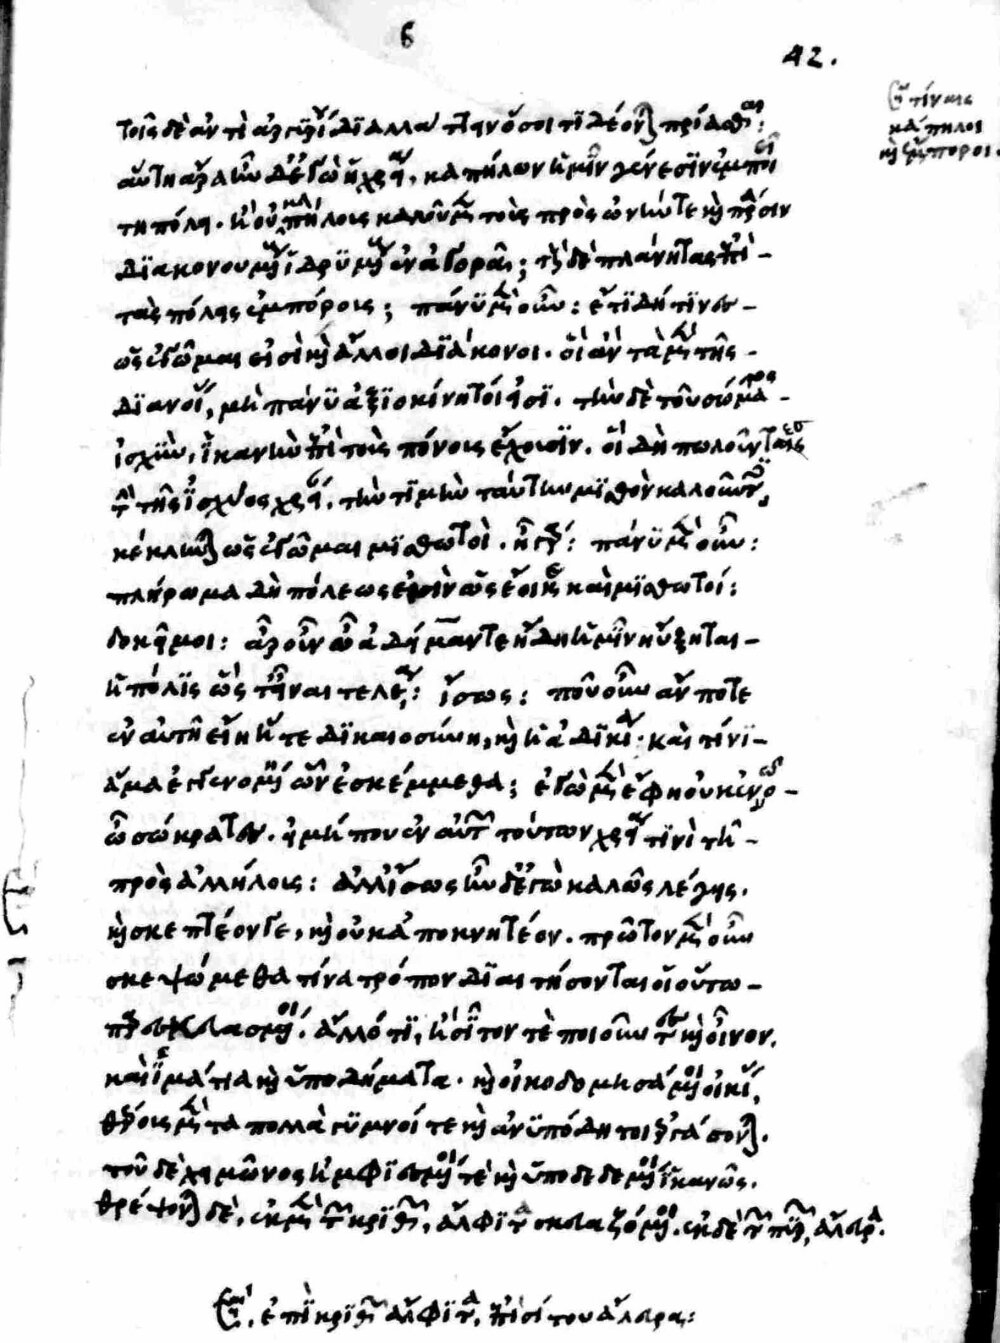 β
42.
τίνες
κάπηλοι
καὶ ἔμποροι
τοῖς δὲ ἀντὶ αὖ ἀργυρίου διαλλάττειν ὅσοι τι δέονται πρίασθαι:
αὕτη ἄρα ἦν δ' ἐγὼ ἡ χρεία, καπήλων ἡμῖν γένεσιν ἐμποιεῖ
τῇ πόλει. ἢ οὐ καπήλους καλοῦμεν τοὺς πρὸς ὠνήν τε καὶ πρᾶσιν
διακονοῦντας ἱδρυμένους ἐν ἀγορᾷ; τοὺς δὲ πλάνητας ἐπὶ
τὰς πόλεις ἐμπόρους; πάνυ μὲν οὖν: ἔτι δή τινες
ὡς ἐγᾦμαι εἰσὶ καὶ ἄλλοι διάκονοι. οἳ ἂν τὰ μὲν τῆς
διανοίας, μὴ πάνυ ἀξιοκοινώνητοι ὦσι. τὴν δὲ τοῦ σώματος
ἰσχὺν, ἱκανὴν ἐπὶ τοὺς πόνους ἔχουσιν. οἳ δὴ πωλοῦντες
τὴν τῆς ἰσχύος χρείαν, τὴν τιμὴν ταύτην μισθὸν καλοῦντες,
κέκληνται ὡς ἐγᾦμαι μισθωτοὶ. ἦ γάρ: πάνυ μὲν οὖν:
πλήρωμα δὴ πόλεώς εἰσιν ὡς ἔοικε καὶ μισθωτοί:
δοκεῖ μοι: ἆρ' οὖν ὦ ἀδείμαντε ἤδη ἡμῖν ηὔξηται
ἡ πόλις ὥστ' εἶναι τελέα: ἴσως: ποῦ οὖν ἄν ποτε
ἐν αὐτῇ εἴη ἥ τε δικαιοσύνη, καὶ ἡ ἀδικία. καὶ τίνι
ἅμα ἐγγενομένη ὧν ἐσκέμμεθα; ἐγὼ μὲν ἔφη οὐκ ἐννοῶ
ὦ σώκρατες. εἰ μή που ἐν αὐτῶν τούτων χρείᾳ τινὶ τῇ
πρὸς ἀλλήλους: ἀλλ' ἴσως ἦν δ' ἐγὼ καλῶς λέγεις.
καὶ σκεπτέον γε, καὶ οὐκ ἀποκνητέον. πρῶτον μὲν οὖν
σκεψώμεθα τίνα τρόπον διαιτήσονται οἱ οὕτω
παρεσκευασμένοι. ἄλλό τι, ἢ σῖτόν τε ποιοῦντες καὶ οἶνον,
καὶ ἱμάτια καὶ ὑποδήματα. καὶ οἰκοδομησάμενοι οἰκίας,
θέρους μὲν τὰ πολλὰ γυμνοί τε καὶ ἀνυπόδητοι ἐργάσονται.
τοῦ δὲ χειμῶνος ἠμφιεσμένοι τὲ καὶ ὑποδεδεμένοι ἱκανῶς.
θρέψονται δὲ, ἐκ μὲν τῶν κριθῶν, ἄλφιτα σκευαζόμενοι. ἐκ δὲ τῶν πυρῶν, ἄλευρα.
ἐπὶ κριθῶν ἄλφιτα, ἐπὶ σίτου ἄλευρα: